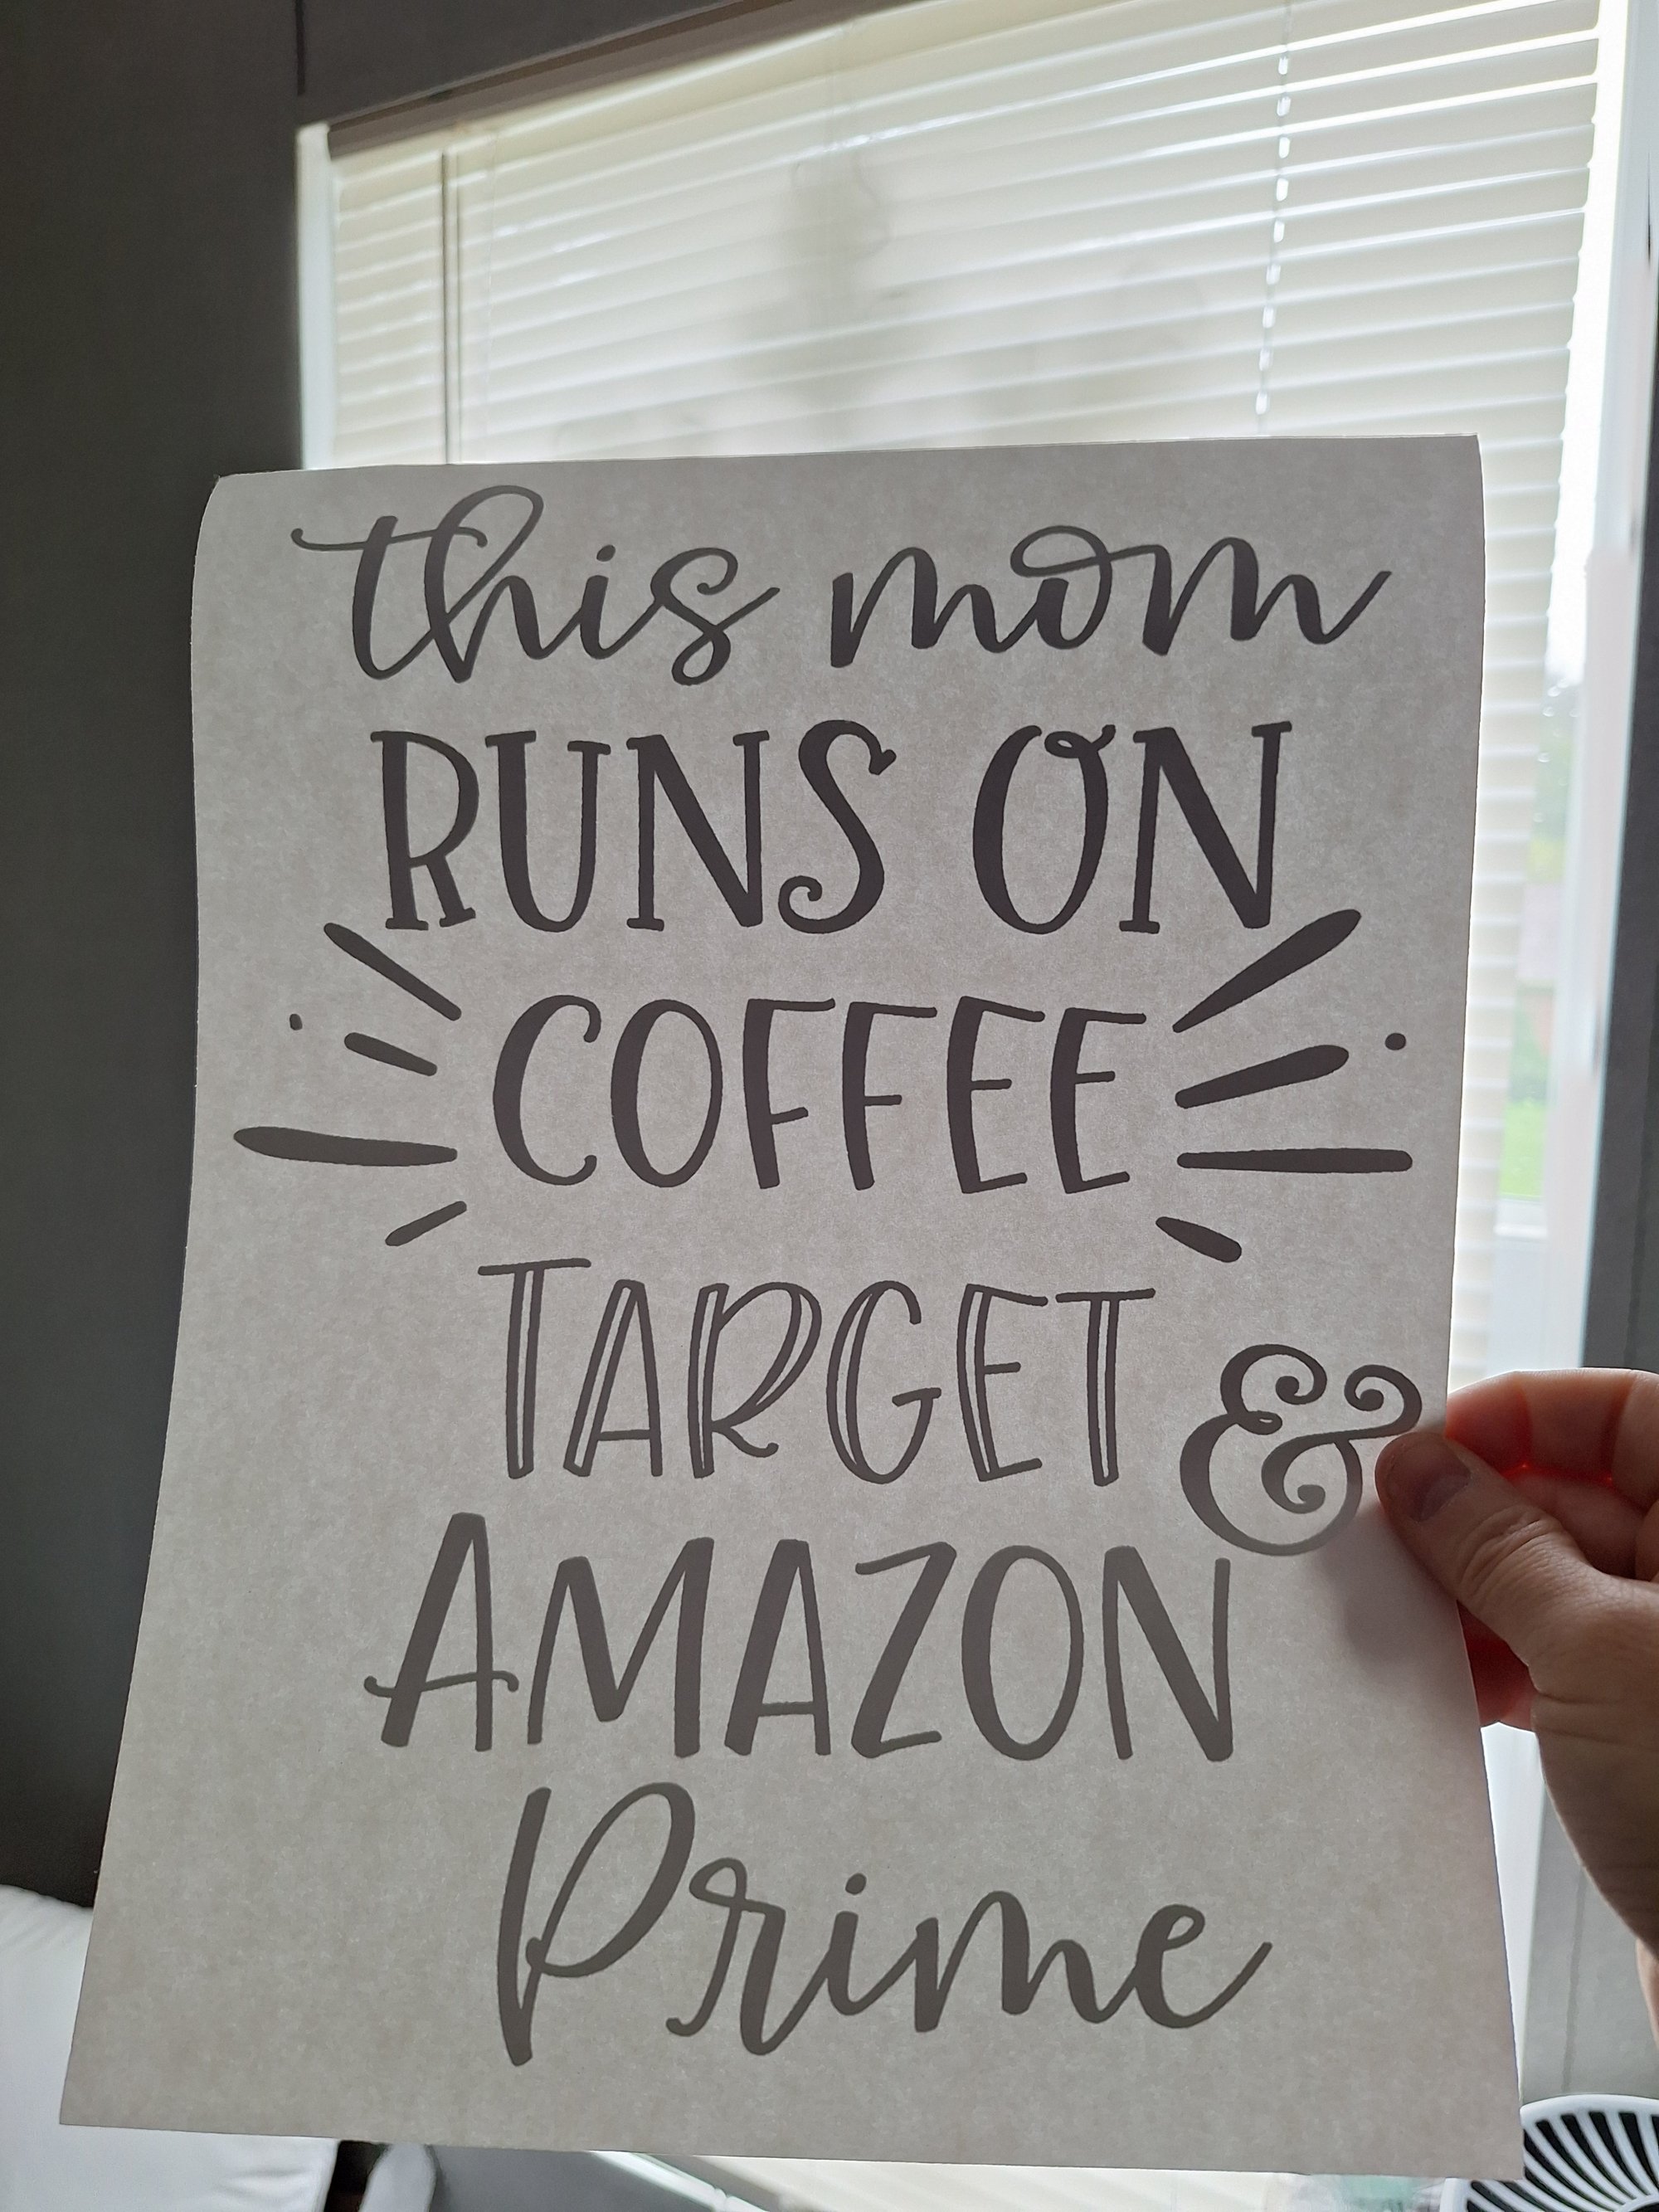 this mom
RUNS ON
COFFEE
TARGET &
AMAZON
Prime